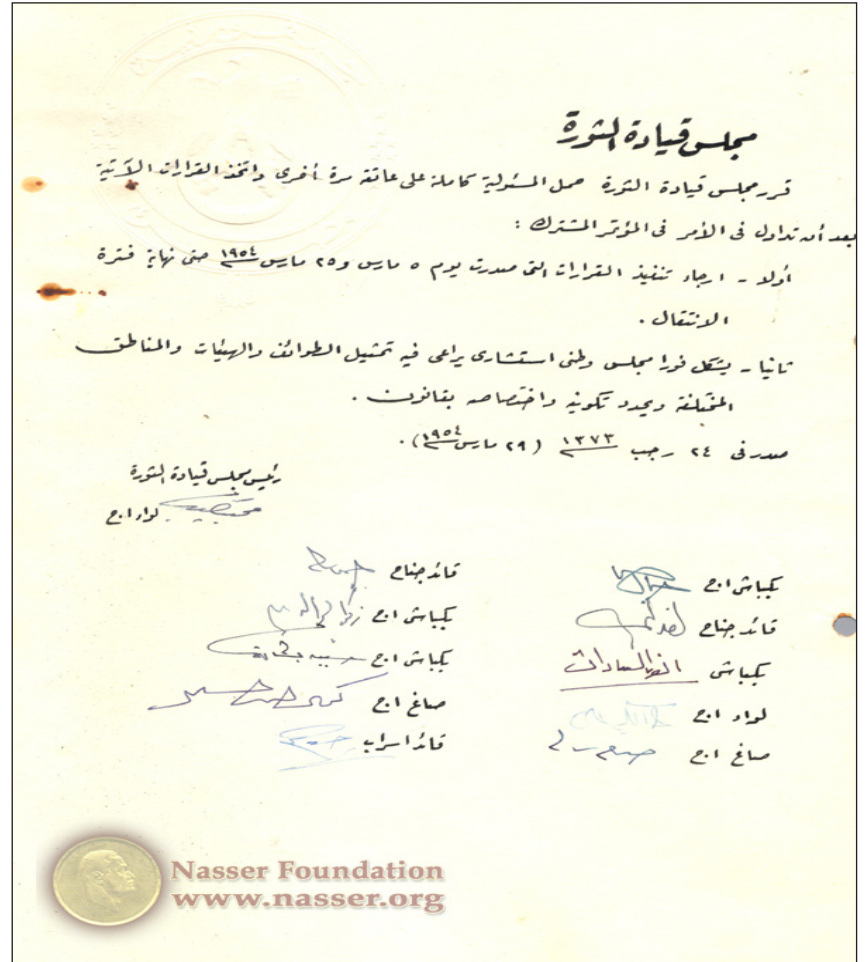 مجلس قيادة الثورة
قرر مجلس قيادة الثورة حمل المسئولية كاملة على عاتقه مرة أخرى واتخذ القرارات الآتية
بعد أن تداول فى الأمر فى المؤتمر المشترك :
أولا - ارجاء تنفيذ القرارات التى صدرت يوم ٥ مارس و ٢٥ مارس ١٩٥٤ حتى نهاية فترة
الانتقال .
ثانيا - يشكل فورا مجلس وطنى استشارى يراعى فيه تمثيل الطوائف والهيئات والمناطق
المختلفة ويحدد تكوينه واختصاصه بقانون .
صدر فى ٢٤ رجب ١٣٧٣ ( ٢٩ مارس ١٩٥٤ ) .
رئيس مجلس قيادة الثورة
لواء ا.ح
بكباشى ا.ح
قائد جناح
بكباشى انور السادات
لواء ا.ح
صاغ ا.ح
قائد جناح
بكباشى ا.ح
بكباشى ا.ح
صاغ ا.ح كمال الدين حسين
قائد اسراب
Nasser Foundation
www.nasser.org